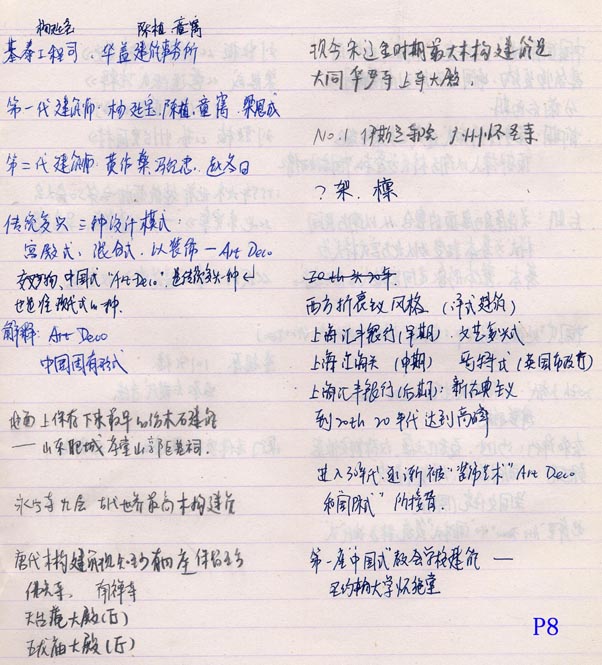 杨廷宝 陈植 童寯
基泰工程司、华盖建筑事务所
第一代建筑师: 杨廷宝、陈植、童寯、梁思成
第二代建筑师 黄作燊、冯纪忠、赵冬日
传统复兴 三种设计模式:
宫殿式、混合式、以装饰—Art Deco
中国式"Art Deco"是传统复兴一种
也是 现代式的一种.
解释: Art Deco
中国固有形式
地面上保存下来最早的仿木石建筑
— 山东肥城孝堂山郭巨祠.
永宁寺九层 古代世界最高木构建筑
唐代木构建筑现知至少有四座保留至今
佛光寺、南禅寺
天台庵大殿(正)
五龙庙大殿(正)
现今宋辽金时期最大木构建筑是
大同华严寺上寺大殿.
No.1 伊斯兰教堂 广州怀圣寺
? 架、檩
20th 20年.
西方折衷主义风格 (洋式建筑)
上海汇丰银行(早期) 文艺复兴式
上海江海关 (中期) 哥特式 (英国市政厅)
上海汇丰银行(后期): 新古典主义
到20th 20年代达到高峰
进入30年代、逐渐被"装饰艺术"Art Deco
和"国际式" 所接替.
第一座"中国式"教会学校建筑 —
圣约翰大学怀施堂
P8